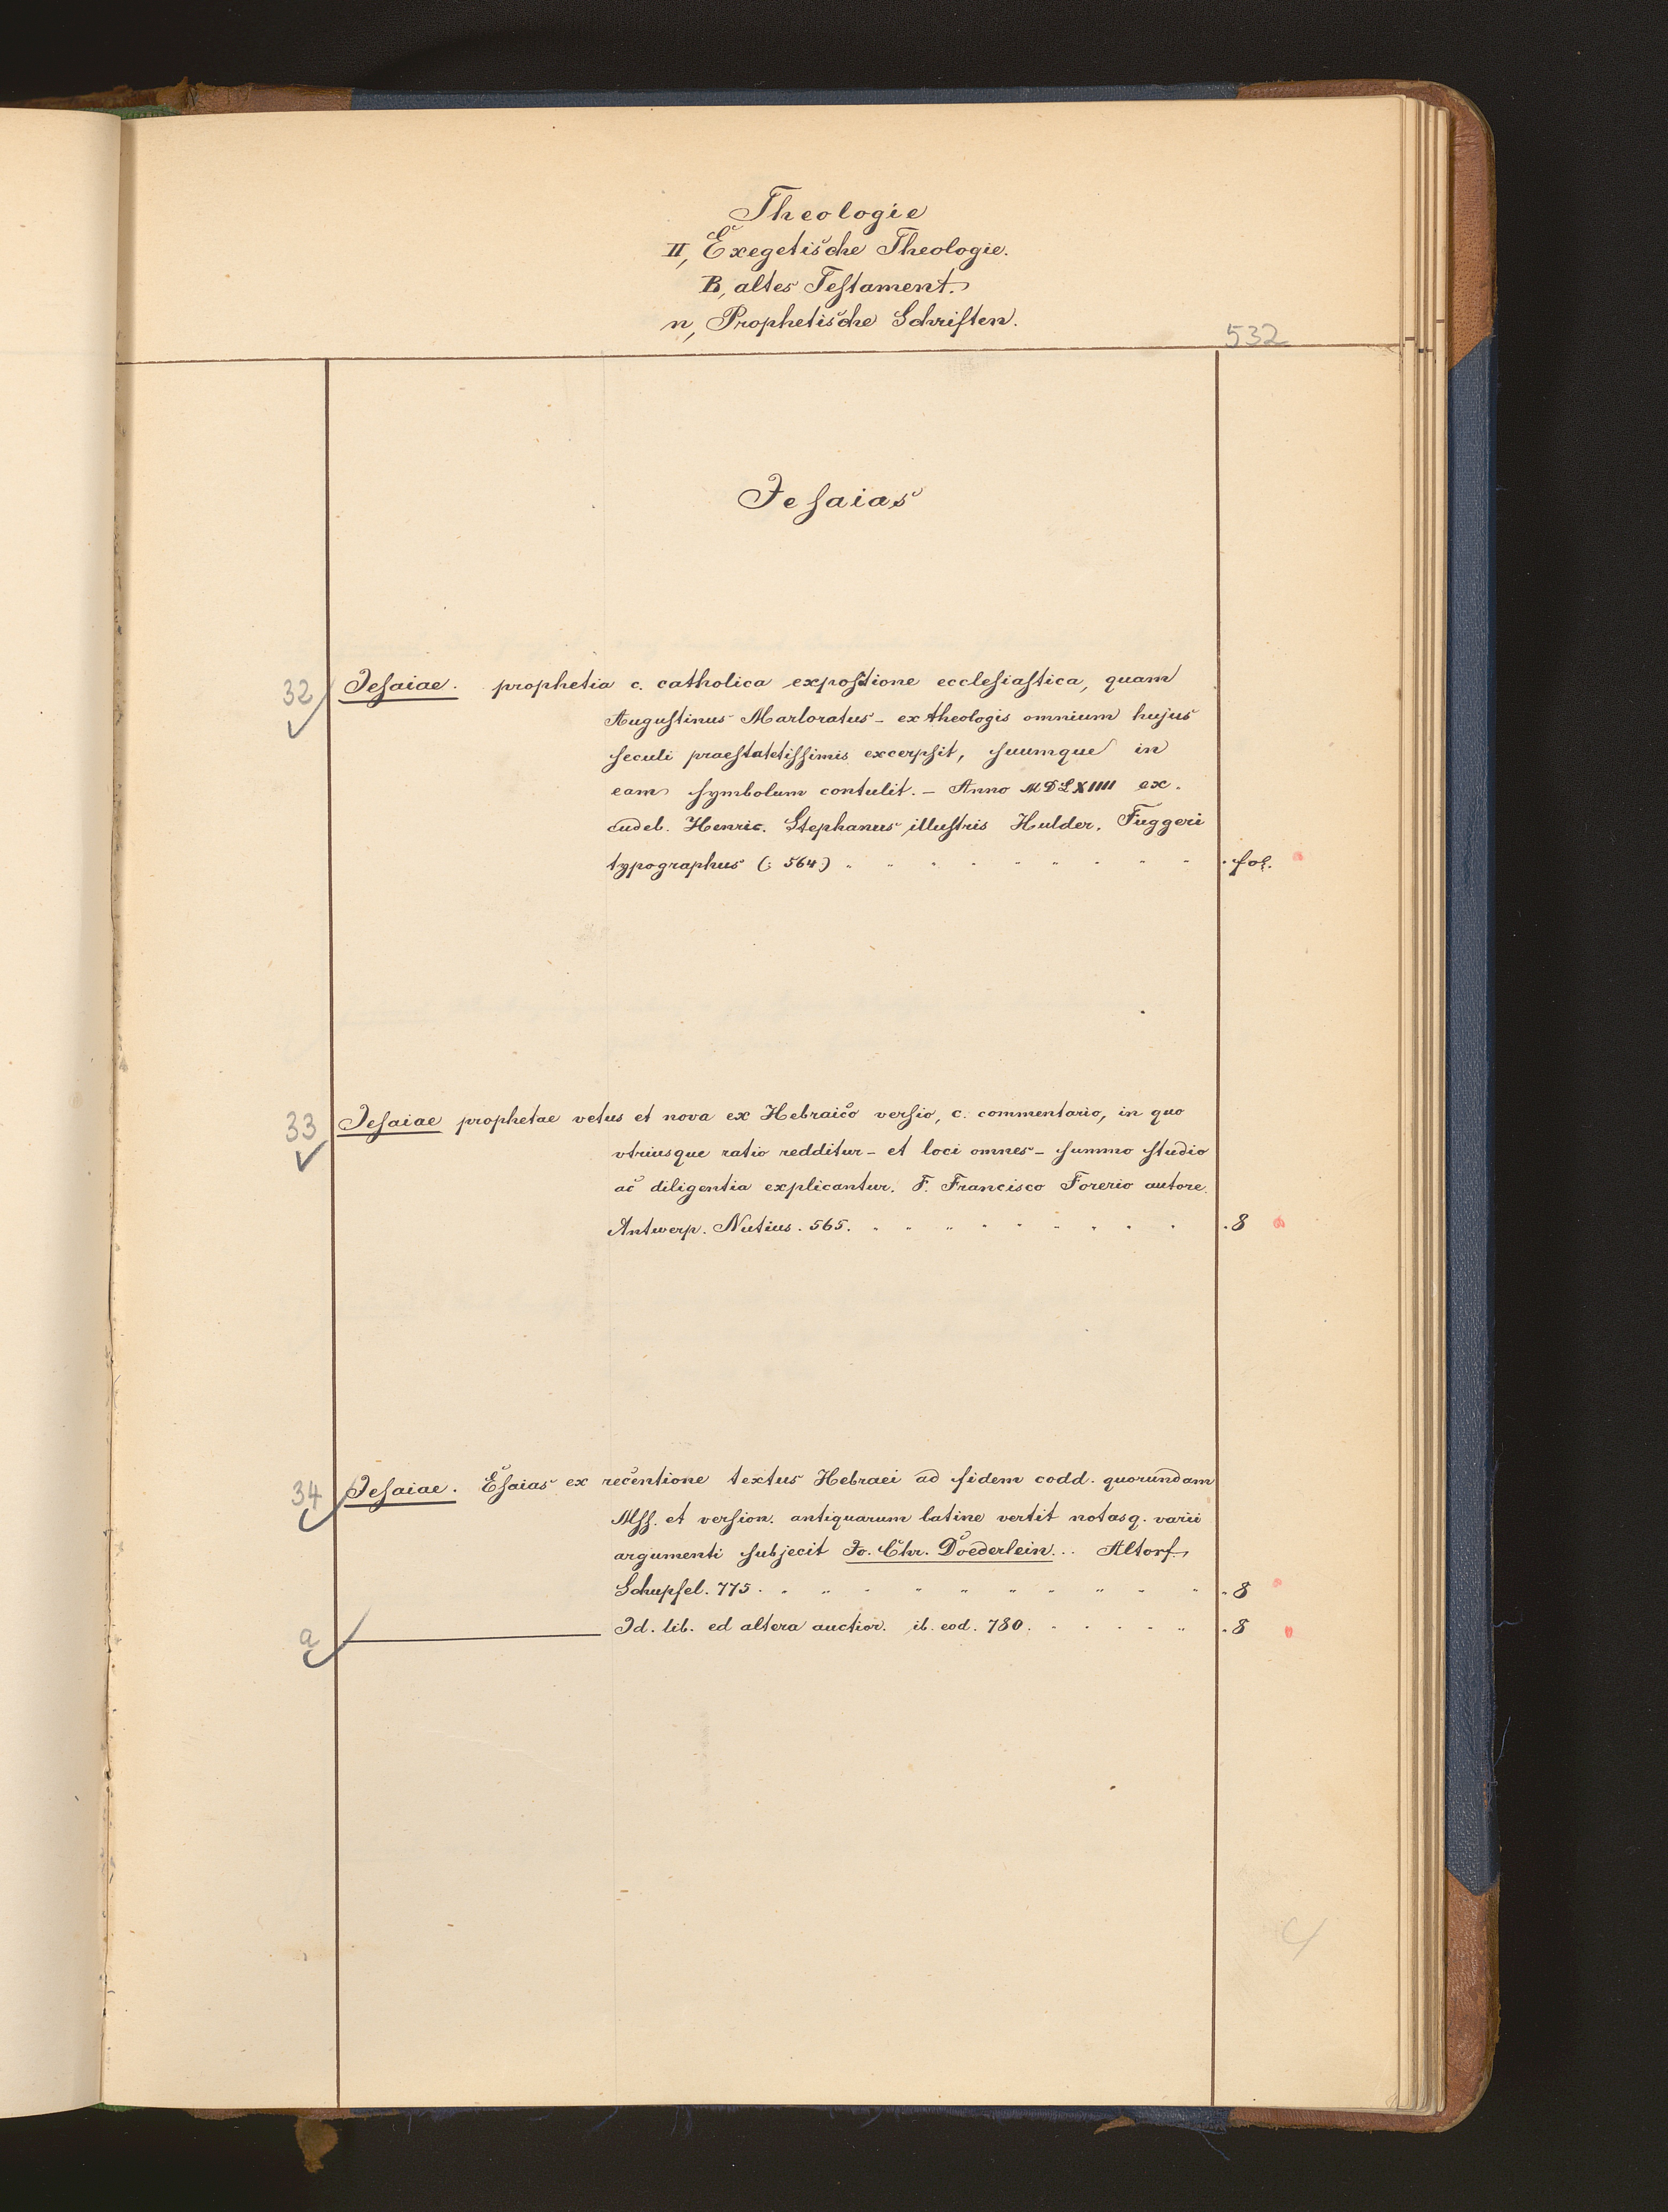 Theologie
II, Exegetische Theologie.
B, altes Testament.
n, Prophetische Schriften.
532
Jesaias
32 Jesaiae. prophetia c. catholica expositione ecclesiastica, quam
Augustinus Marloratus - ex theologis omnium hujus
seculi praestatetissimis excerpsit, suumque in
eam symbolum contulit. - Anno MDLXIIII ex.
cudeb. Henric. Stephanus illustris Hulder. Fuggeri
typographus (: 564) . fol.
33 Jesaiae prophetae vetus et nova ex Hebraico versio, c. commentario, in quo
vtriusque ratio redditur - et loci omnes - summo studio
ac diligentia explicantur. F. Francisco Forerio autore.
Antwerp. Nutius. 565. . 8
34 Jesaiae. Esaias ex recentione textus Hebraei ad fidem codd. quorundam
Mss. et version. antiquarum latine vertit notasq. varii
argumenti subjecit Jo. Chr. Doederlein... Altorf.
Schupfel. 775. . 8
a Id. lib. ed altera auctior. ib. eod. 780. . 8